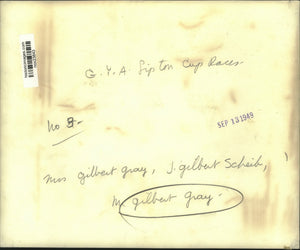 G.Y.A. Lipton Cup Races
No 3-
SEP 13 1949
Mrs Gilbert Gray, J. Gilbert Scheib,
M Gilbert Gray